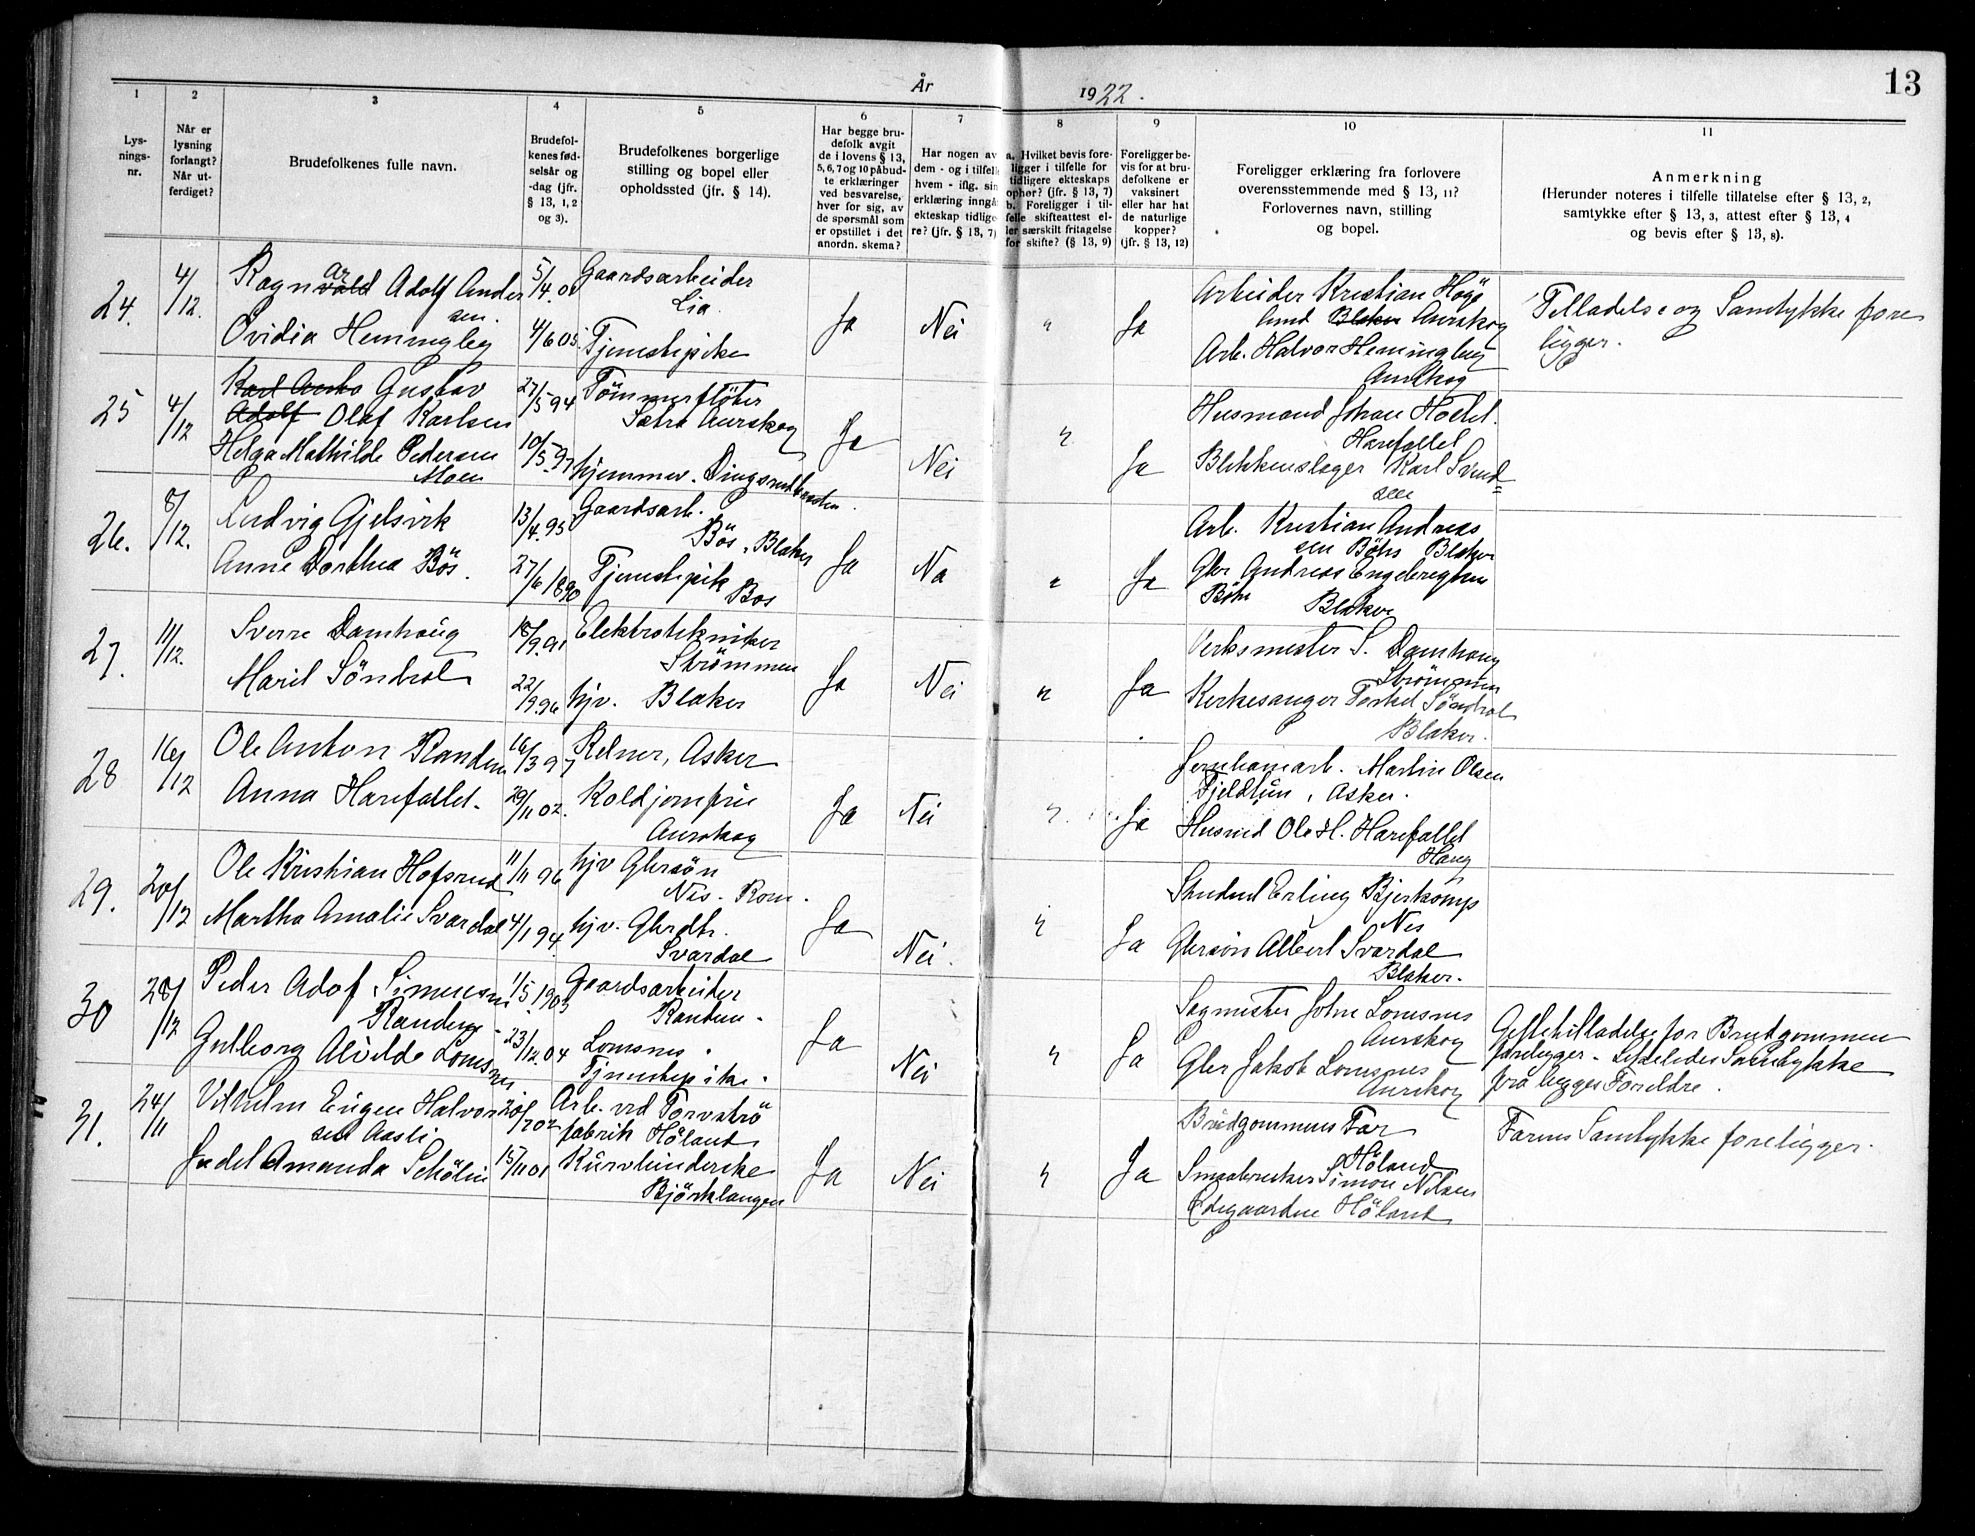 13
År 1922.
1
Lys-
nings-
nr.
2
Når er
lysning
forlangt?
Når ut-
ferdiget?
3
Brudefolkenes fulle navn.
4
Brudefol-
kenes fød-
selsår og
-dag (jfr.
§ 13, 1, 2
og 3).
5
Brudefolkenes borgerlige
stilling og bopel eller
opholdssted (jfr. § 14).
6
Har begge bru-
defolk avgit
de i lovens § 13,
5, 6, 7 og 10 påbud-
te erklæringer
ved besvarelse,
hver for sig, av
de spørsmål som
er opstillet i det
anordn. skema?
7
Har nogen av
dem - og i tilfelle
hvem - iflg. sin
erklæring inngå
ekteskap tidlige-
re? (jfr. § 13, 7)
8
a. Hvilket bevis fore-
ligger i tilfelle for
tidligere ekteskaps
ophør? (jfr. § 13, 7)
b. Foreligger i til-
felle skifteattest el-
ler særskilt fritagelse
for skifte? (§ 13, 9)
9
Foreligger be-
vis for at bru-
defolkene er
vaksinert
eller har hat
de naturlige
kopper?
(jfr. § 13, 12)
10
Foreligger erklæring fra forlovere
overensstemmende med § 13, 11?
Forlovernes navn, stilling
og bopel.
11
Anmerkning
(Herunder noteres i tilfelle tillatelse efter § 13, 2,
samtykke efter § 13, 3, attest efter § 13, 4
og bevis efter § 13, 8).
24.
4/12.
Ragnvald ar Adolf Ander
sen.
Ovidia Hemmingby
4/6 05
Gaardsarbeider
Lia.
Tjenestepike
Ja
Nei
"
Ja
Arbeider Kristian Höge
lund Blaker Aurskog
Arb. Halvor Hemingby
Aurskog
Tilladelse og Samtykke fore
ligger.
25
4/12
Gustav
Adolf Olaf Karlsen
Helga Mathilde Pedersen
Moen
27/5 94
10/5 97
Tömmerflöter
Sætra Aurskog
hjemmev.
Ja
Nei
"
Ja
Husmand Johan
Harefallet
Blikkenslager Karl Svend=
sen
26.
8/12.
Ludvig Gjelsvik
Anne Dorthea Bös.
13/4.95
27/6 1890
Gaardsarb.
Bös, Blaker
Tjenestepik
Bos
Ja
Na
"
Ja
Arb. Kristian Andreas
sen Böhs Blaker
Gbr Andreas Engebregtsen
Böhs
Blaker
27.
11/12.
Sverre Damhaug
Marit Söndrol
18/9.91
22/9.96
Elektrotekniker
Strömmen
hjv. Blaker
Ja
Nei
"
Ja
Verksmester S. Damhaug
Strömmen
Kirkesanger Söndrol
Blaker.
28
16/12
Ole Anton Randem
Anna Harefallet.
16/3 97
29/11 02.
Kelner, Asker
Koldjomfru
Aurskog
Ja
Nei
"
Ja
Jernbanearb. Martin Olsen
Fjeldtun, Asker.
Husmd Ole H. Harefallet
Haug
29.
20/12
Ole Kristian Hofsrud
Martha Amalie Svardal
11/11 96
4/1 94.
hjv Gbrsön
Nes. Rom.
hjv. Gbrdtr.
Svardal
Ja
Nei.
"
Ja
Student Erling
Nes
Gbrsön Albert Svardal
Blaker.
30
28/12
Peder Adof Simensen
Randem.
Gulborg Alvilde Lomsnes
1/5.1903
23/12.04
Gaardsarbeider
Randem.
Lomsnes.
Tjenestepike.
Ja
Nei
"
Ja
Sagmester John Lomsnes
Aurskog
Gbr Jakob Lomsnes
Aurskog
Giftetilladelse for Brudgommen
foreligger. Ligeledes Samtykke
fra begges Foreldre.
31.
24/11
Vilhelm Eugen Halvor
sen Aasli
Judel Amanda Schölin
20/7 02
15/11 01
Arb. ved Torvströ
fabrik Höland
Kurvbinderske
Björklangen
Ja
Nei
"
Ja
Brudgommens Far
Höland
Smaabruker Simon Nilsen
Ödegaarden Höland
Farens Samtykke foreligger.